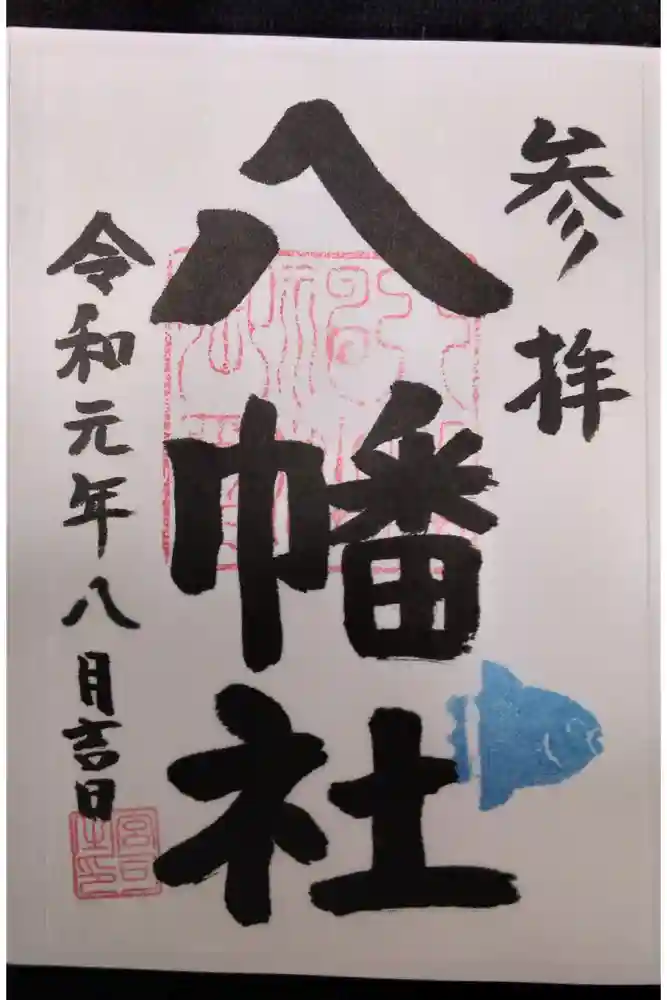 参拝
八幡社
令和元年八月吉日